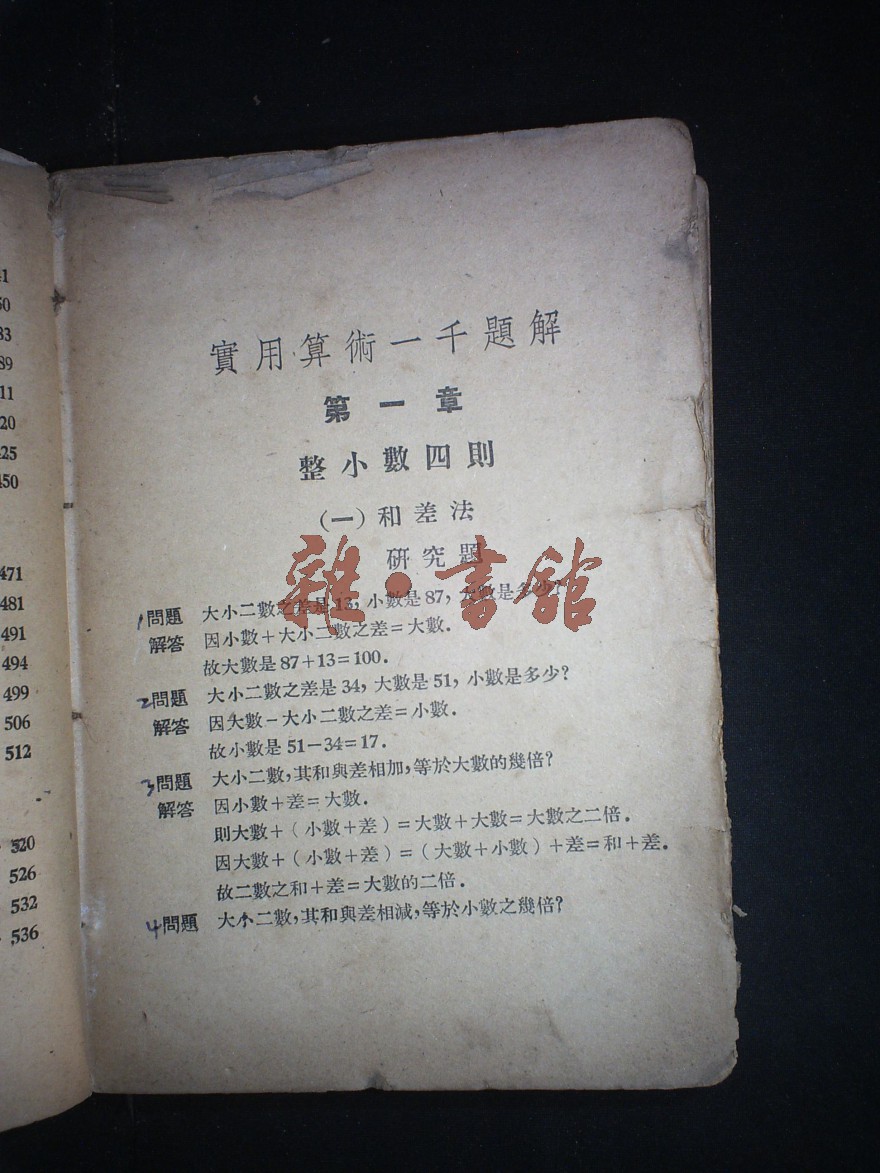 41
50
83
89
11
20
425
450
471
481
491
494
499
506
512
520
526
532
536
實用算術一千題解
第一章
整小數四則
(一)和差法
研究題
雜·書館
1問題 大小二數之差是13, 小數是87, 大數是多少?
解答 因小數+大小二數之差=大數.
故大數是87+13=100.
2問題 大小二數之差是34, 大數是51, 小數是多少?
解答 因大數-大小二數之差=小數.
故小數是51-34=17.
3問題 大小二數,其和與差相加,等於大數的幾倍?
解答 因小數+差=大數.
則大數+(小數+差)=大數+大數=大數之二倍.
因大數+(小數+差)=(大數+小數)+差=和+差.
故二數之和+差=大數的二倍.
4問題 大小二數,其和與差相減,等於小數之幾倍?